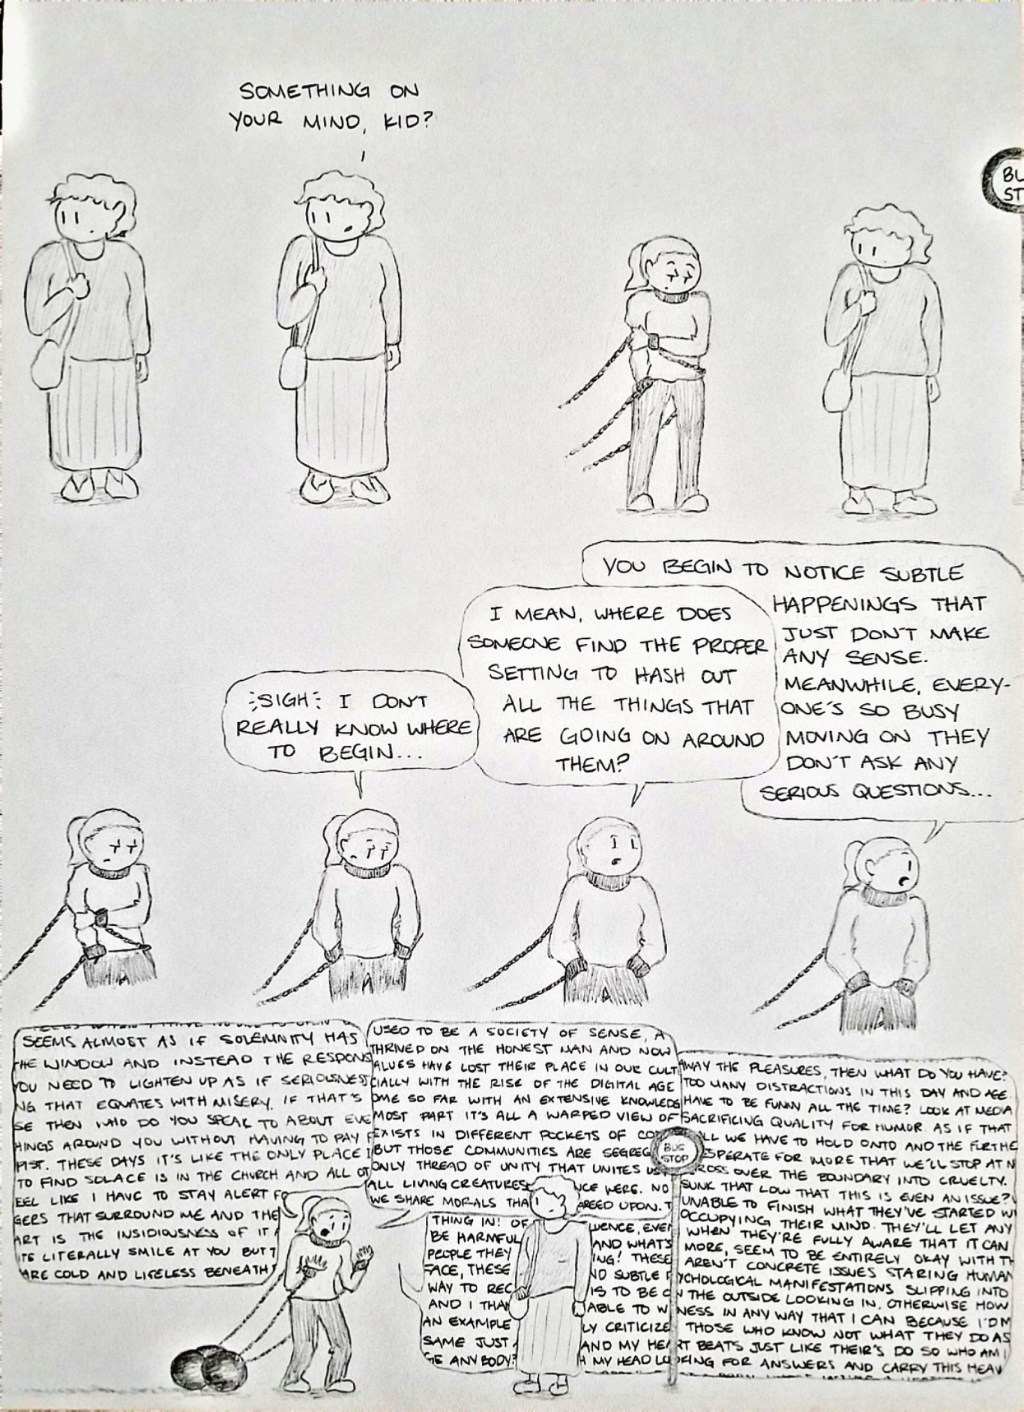 SOMETHING ON
YOUR MIND, KID?
BU
ST
SIGH I DON'T
REALLY KNOW WHERE
TO BEGIN...
I MEAN, WHERE DOES
SOMEONE FIND THE PROPER
SETTING TO HASH OUT
ALL THE THINGS THAT
ARE GOING ON AROUND
THEM?
YOU BEGIN TO NOTICE SUBTLE
HAPPENINGS THAT
JUST DON'T MAKE
ANY SENSE.
MEANWHILE, EVERY-
ONE'S SO BUSY
MOVING ON THEY
DON'T ASK ANY
SERIOUS QUESTIONS...
SEEMS ALMOST AS IF SOLEMNITY HAS
HE WINDOW AND INSTEAD THE RESPONS
YOU NEED TO LIGHTEN UP AS IF SERIOUSNES
NG THAT EQUATES WITH MISERY. IF THAT'S
SE THEN WHO DO YOU SPEAK TO ABOUT EVE
HINGS AROUND YOU WITHOUT HAVING TO PAY F
IST. THESE DAYS IT'S LIKE THE ONLY PLACE I
TO FIND SOLACE IS IN THE CHURCH AND ALL OT
EEL LIKE I HAVE TO STAY ALERT F
GERS THAT SURROUND ME AND THE
ART IS THE INSIDIOUSNESS OF IT A
TS LITERALLY SMILE AT YOU BUT T
ARE COLD AND LIFELESS BENEATH
USED TO BE A SOCIETY OF SENSE, A
THRIVED ON THE HONEST MAN AND NOW
ALUES HAVE LOST THEIR PLACE IN OUR CULT
CIALLY WITH THE RISE OF THE DIGITAL AGE
OME SO FAR WITH AN EXTENSIVE KNOWLEDG
MOST PART IT'S ALL A WARPED VIEW OF
EXISTS IN DIFFERENT POCKETS OF CO
BUT THOSE COMMUNITIES ARE SEGREG
ONLY THREAD OF UNITY THAT UNITES US
ALL LIVING CREATURES NCE WERE. NO
WE SHARE MORALS THA REED UPON. T
THING IN! OF UENCE, EVEN
BE HARMFUL AND WHAT'S
PEOPLE THEY ING! THESE
FACE, THESE ND SUBTLE
WAY TO REC IS TO BE
AND I THAN ABLE TO W
AN EXAMPLE LY CRITICIZE
SAME JUST AND MY HEA
GE ANYBODY? H MY HEAD LO
AWAY THE PLEASURES, THEN WHAT DO YOU HAVE?
TOO MANY DISTRACTIONS IN THIS DAY AND AGE.
HAVE TO BE FUNNY ALL THE TIME? LOOK AT MEDIA
SACRIFICING QUALITY FOR HUMOR. AS IF THAT
LL WE HAVE TO HOLD ONTO AND THE FURTHE
SPERATE FOR MORE THAT WE'LL STOP AT N
ROSS OVER THE BOUNDARY INTO CRUELTY.
SUNK THAT LOW THAT THIS IS EVEN AN ISSUE?
UNABLE TO FINISH WHAT THEY'VE STARTED W
OCCUPYING THEIR MIND. THEY'LL LET ANY
WHEN THEY'RE FULLY AWARE THAT IT CAN
MORE, SEEM TO BE ENTIRELY OKAY WITH T
AREN'T CONCRETE ISSUES STARING HUMAN
YCHOLOGICAL MANIFESTATIONS SLIPPING INTO
N THE OUTSIDE LOOKING IN, OTHERWISE HOW
NESS IN ANY WAY THAT I CAN BECAUSE I'D M
THOSE WHO KNOW NOT WHAT THEY DO AS
RT BEATS JUST LIKE THEIR'S DO SO WHO AM I
KING FOR ANSWERS AND CARRY THIS HEAV
BUS
STOP